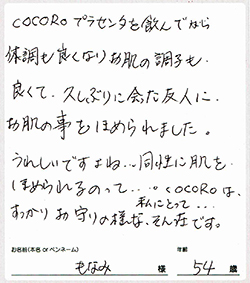 COCORO プラセンタを飲んでから
体調も良くなりお肌の調子も
良くて、久しぶりに会った友人に
お肌の事をほめられました。
うれしいですよね…同性に肌を
ほめられるのって…。COCOROは、
私にとって…
すっかりお守りの様な、そん在です。
お名前(本名 or ペンネーム) 年齢
もなみ 様 54 歳